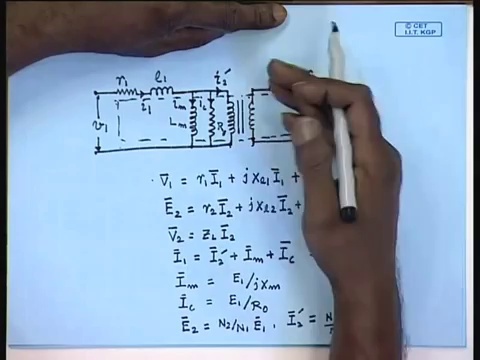 © CET
I.I.T. KGP
r₁ l₁ i₂′
v₁ i₁ iₘ i_c
Lₘ
V̄₁ = r₁Ī₁ + jxₗ₁Ī₁ +
Ē₂ = r₂Ī₂ + jxₗ₂Ī₂ +
V̄₂ = Z_L Ī₂
Ī₁ = Ī₂′ + Īₘ + Ī_c
Īₘ = E₁/jxₘ
Ī_c = E₁/R₀
Ē₂ = N₂/N₁ Ē₁ . Ī₂′ = N